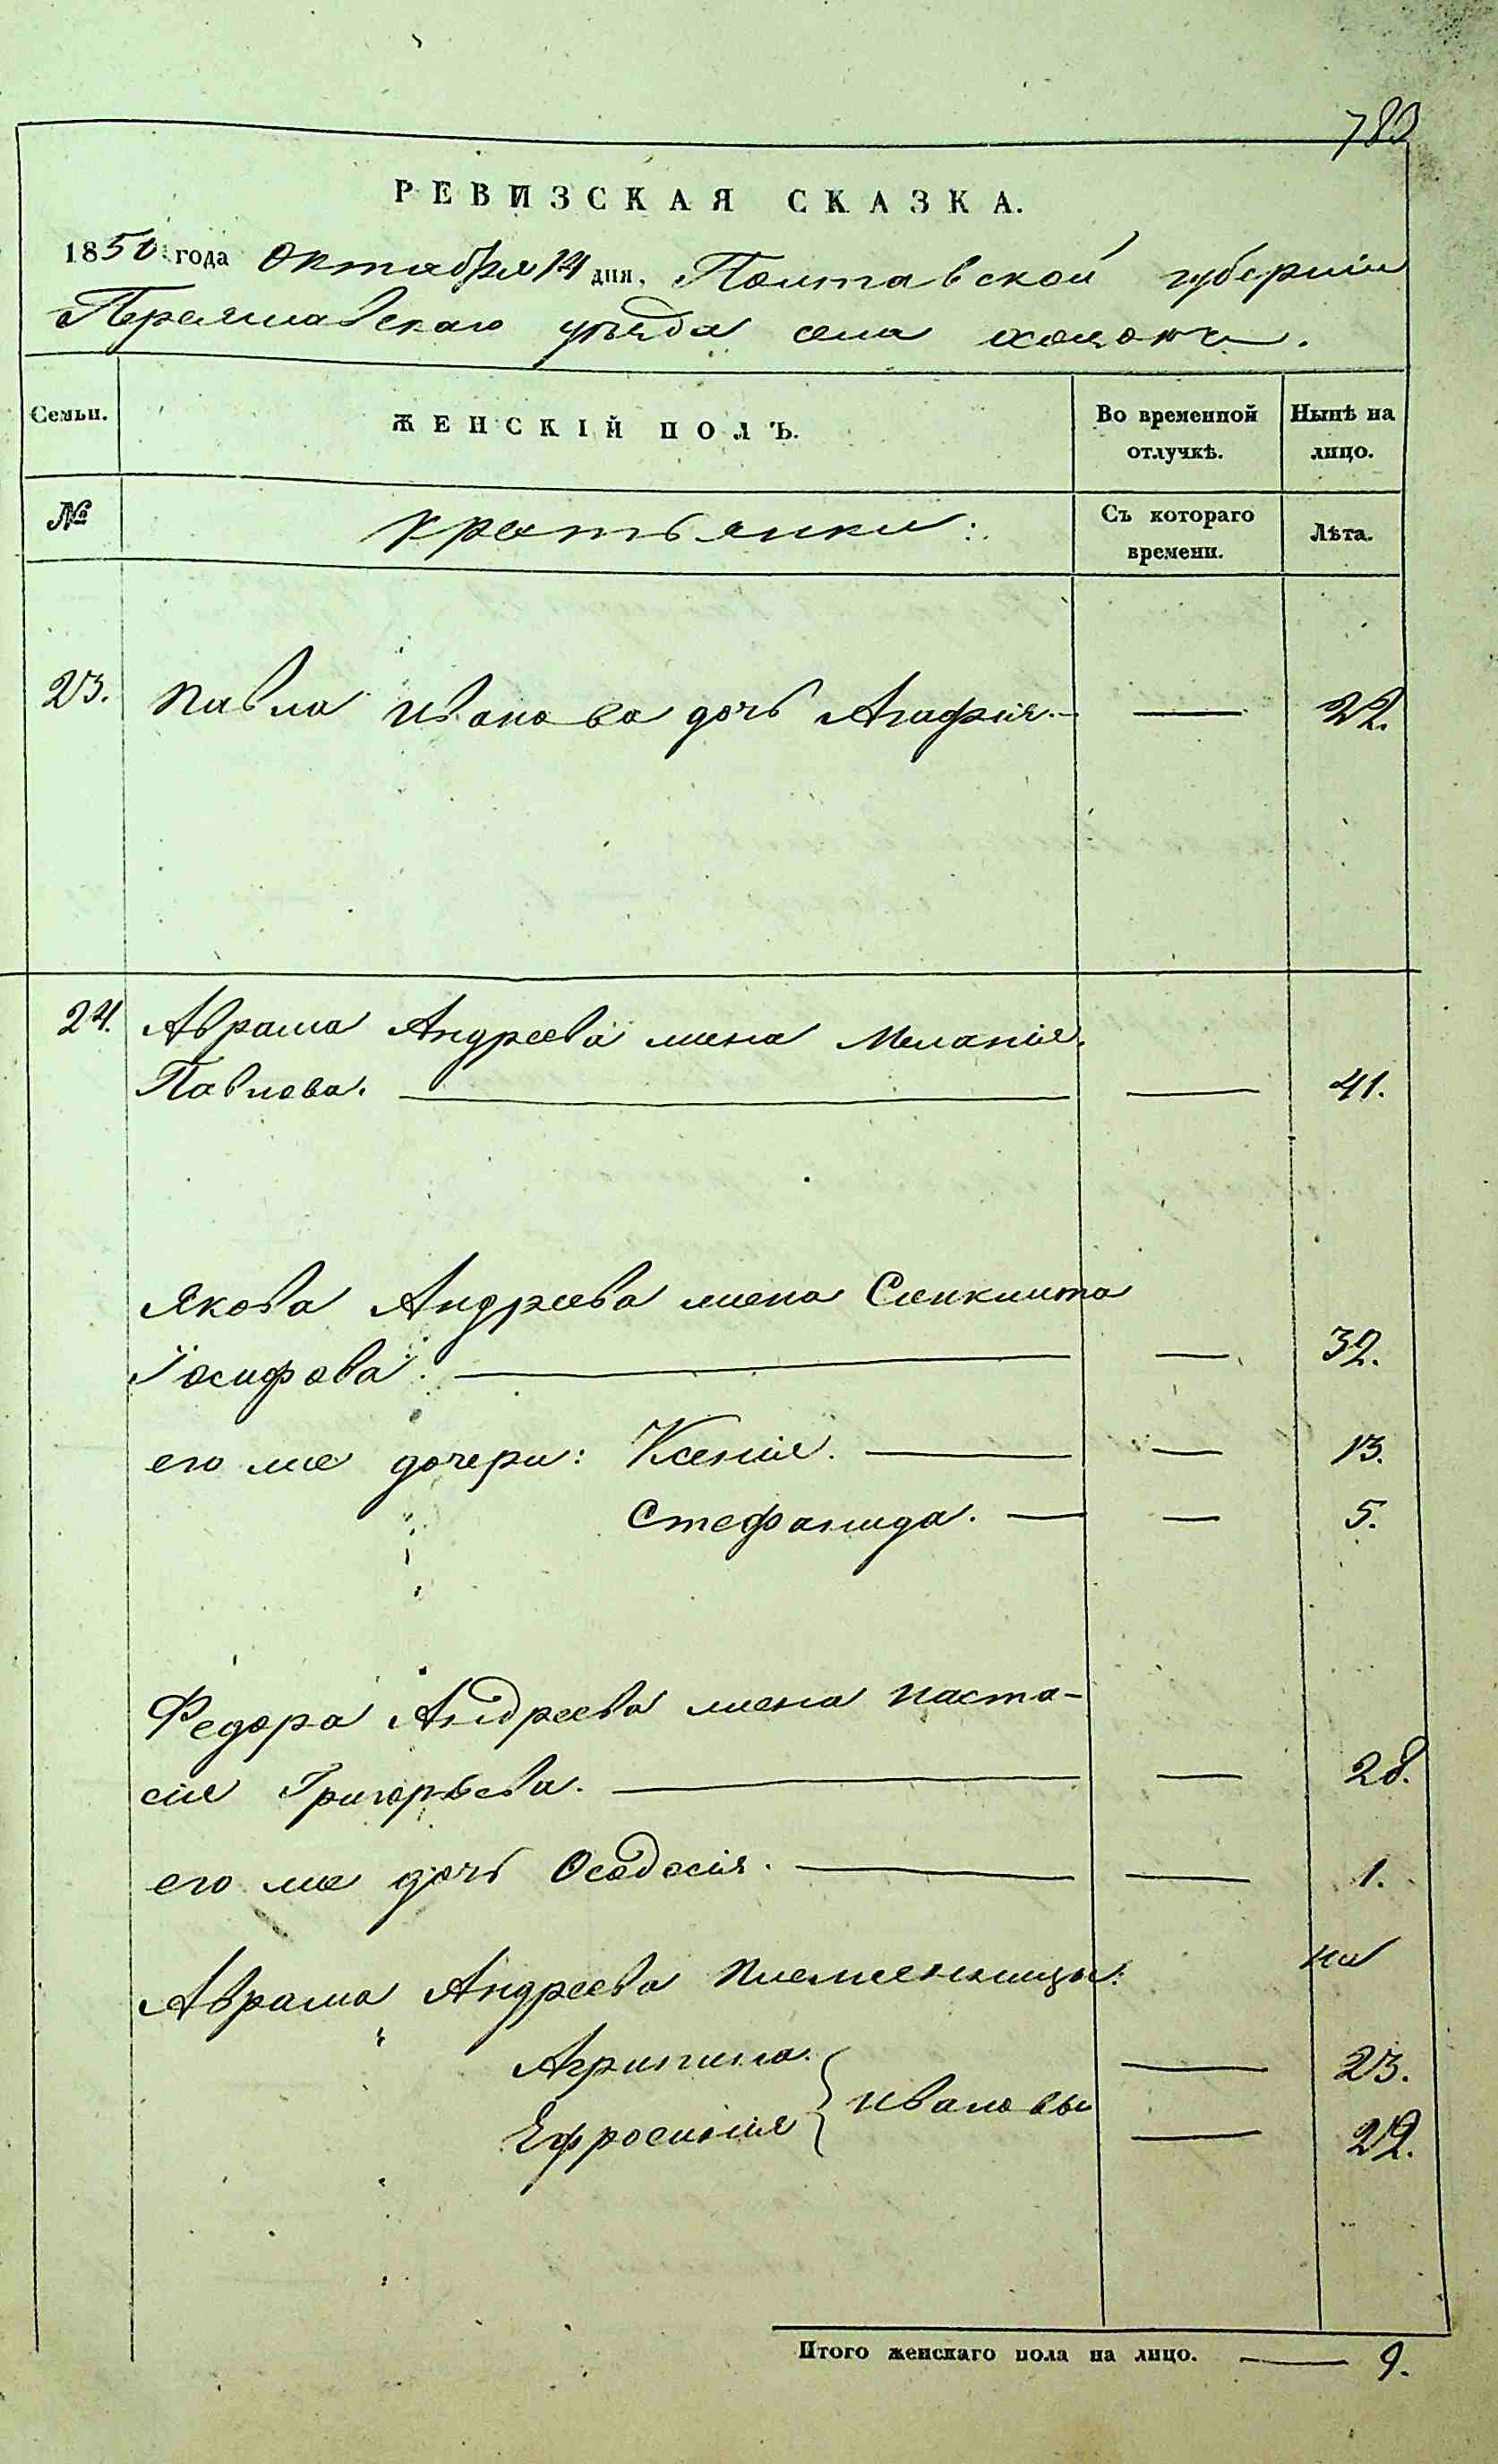 783
РЕВИЗСКАЯ СКАЗКА.
1850 года Октября 14 дня, Полтавской губерніи
Переяславскаго уѣзда села Хоцокъ.
Семьи.
ЖЕНСКІЙ ПОЛЪ.
Во временной отлучкѣ.
Нынѣ на лицо.
№
Крестьянки:
Съ котораго времени.
Лѣта.
23. Павла Иванова дочь Агафія. — — 22.
24. Аврама Андреева жена Меланія
Павлова. — — 41.
Якова Андреева жена Синклита
Іосифова. — — 32.
его же дочери: Ксенія. — — 13.
Стефанида. — — 5.
Федора Андреева жена Наста-
сія Григорьева. — — 28.
его же дочь Феодосія. — — 1.
Аврама Андреева племенницы:
Агрипина. — 23.
Ивановы
Ефросинія — 22.
Итого женскаго пола на лицо. — 9.